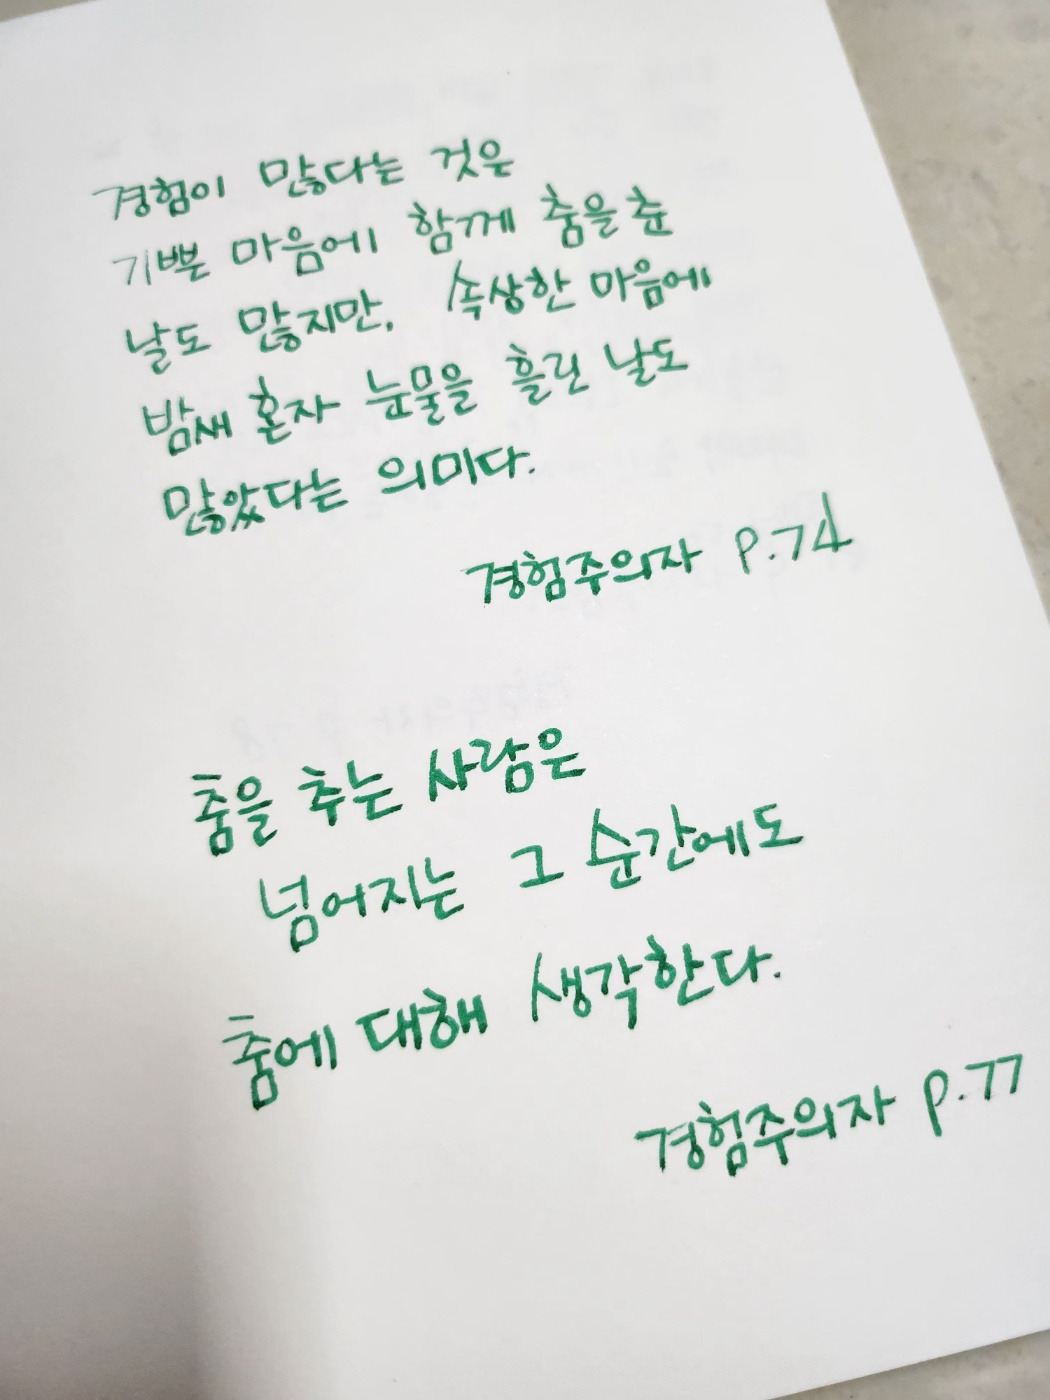 경험이 많다는 것은
기쁜 마음에 함께 춤을 춘
날도 많지만, 속상한 마음에
밤새 혼자 눈물을 흘린 날도
많았다는 의미다.
경험주의자 p.74
춤을 추는 사람은
넘어지는 그 순간에도
춤에 대해 생각한다.
경험주의자 p.77